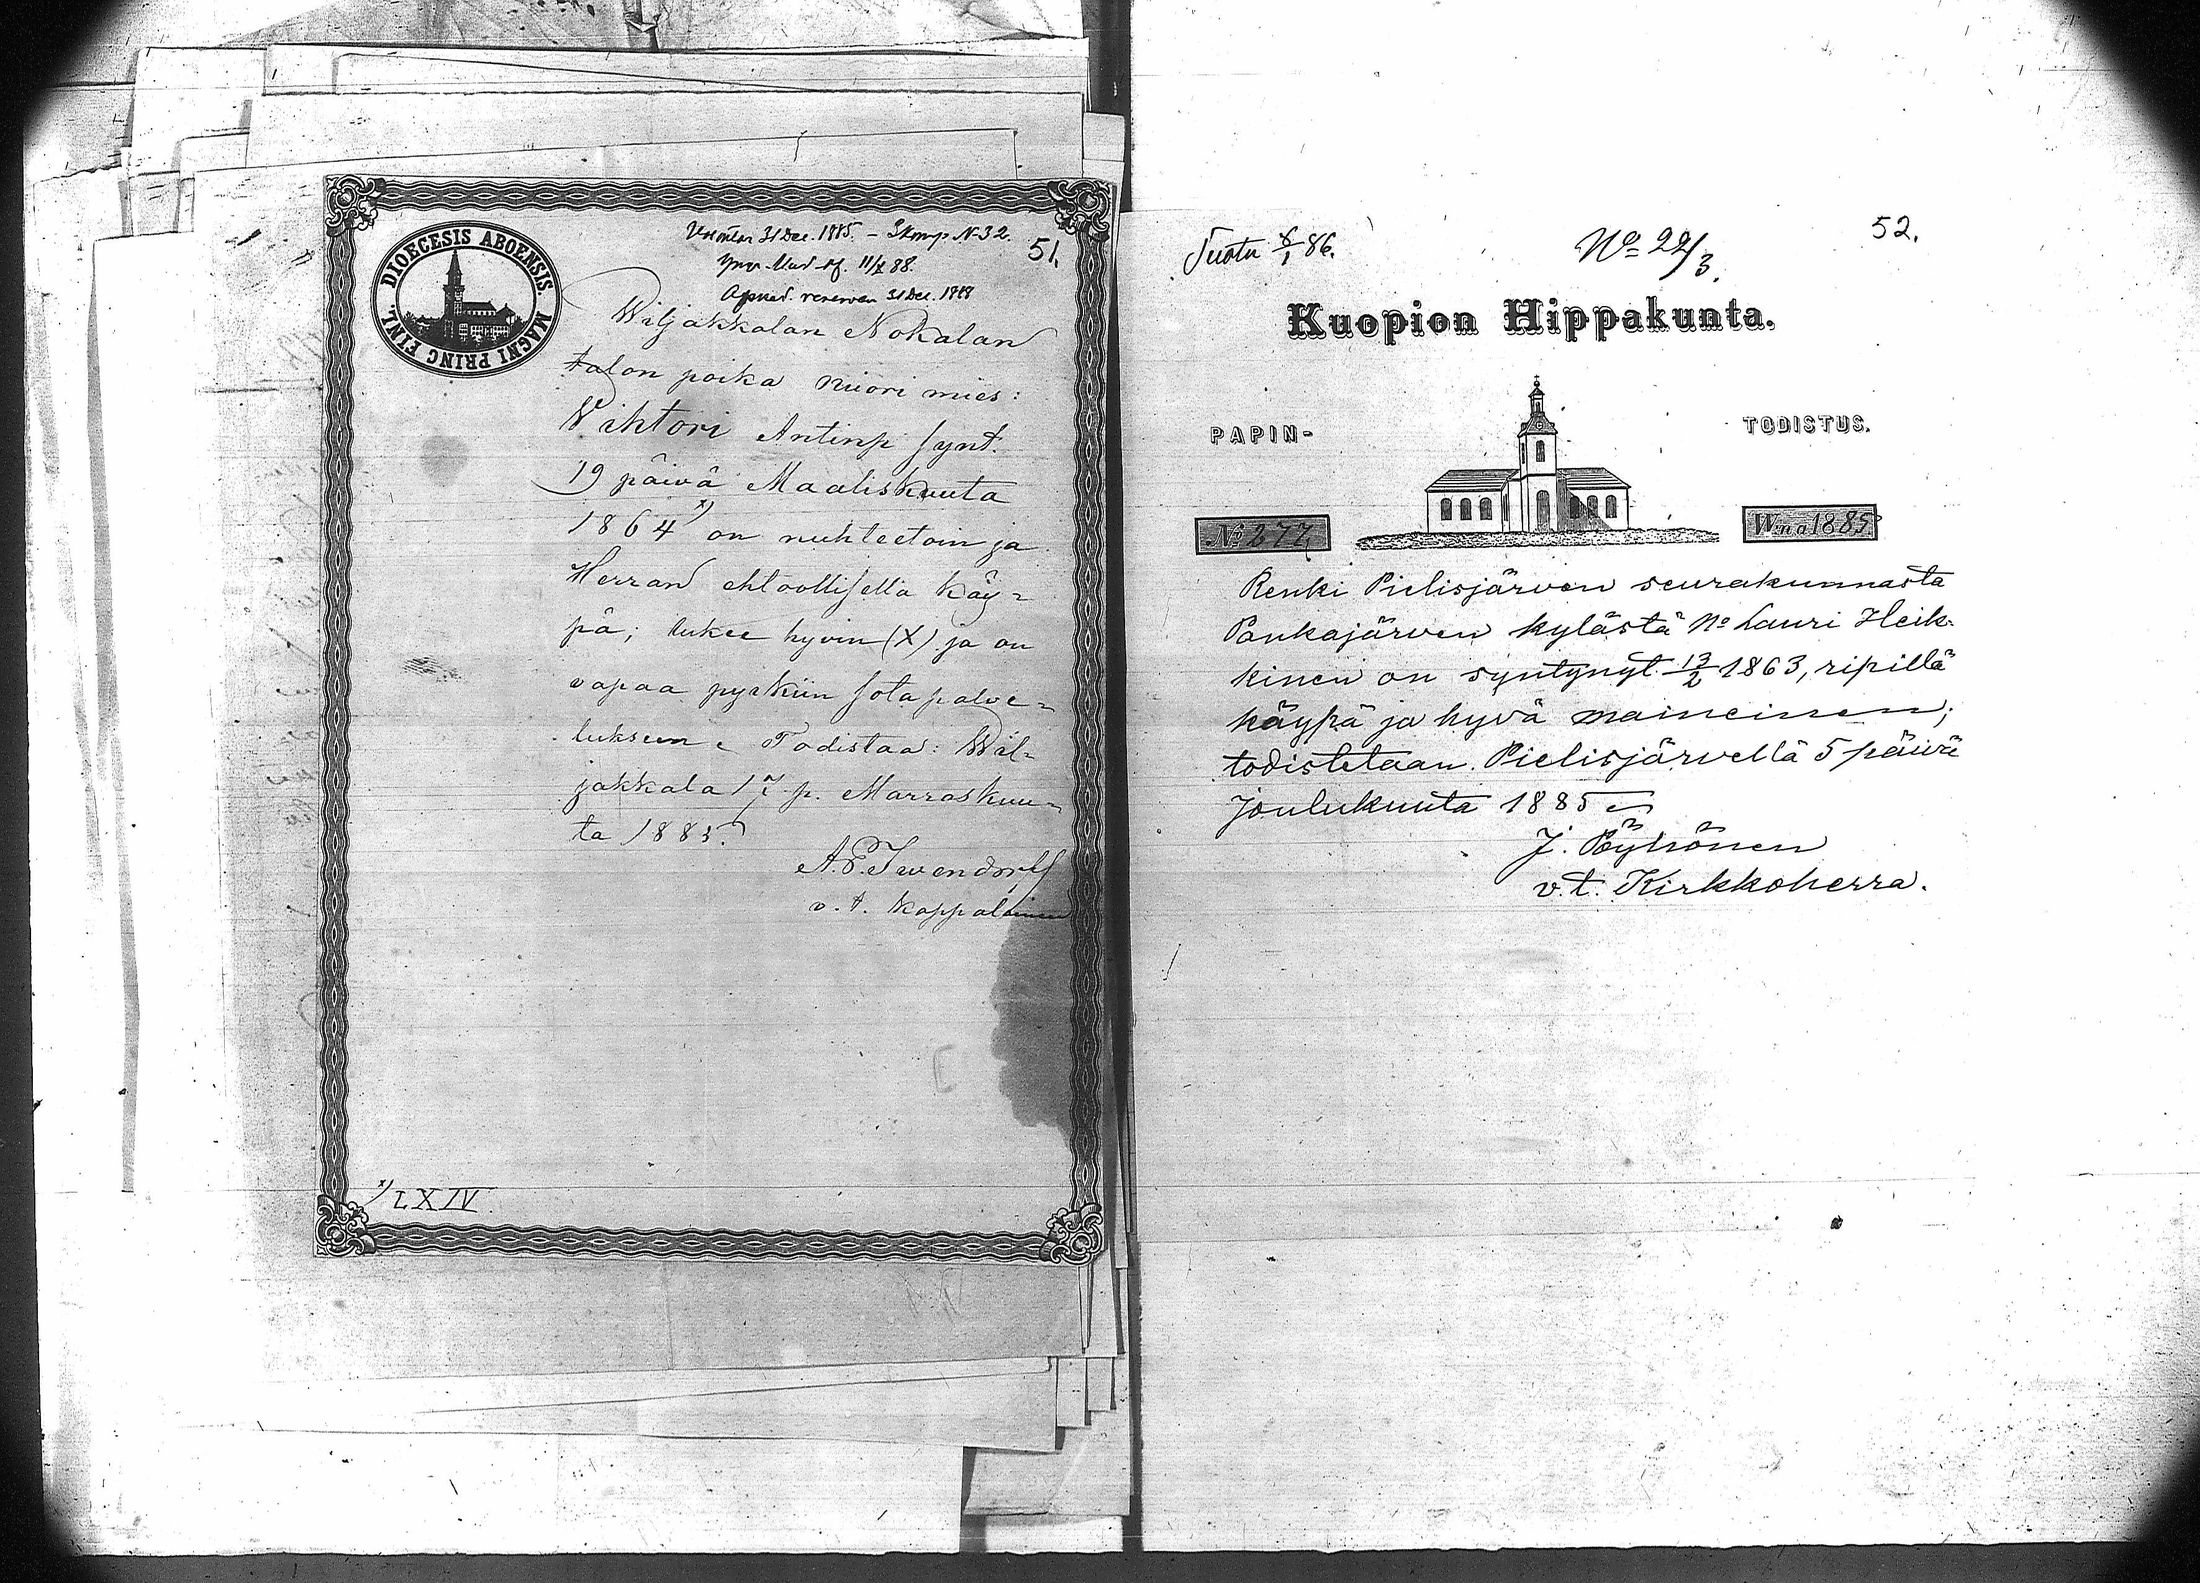 51.
DIOECESIS ABOENSIS. MAGNI PRINC FINL.
31 Dec. 1885. – 3 komp. N 32.
11/X 88.
reserven 31 Dec. 1888
Wiljakkalan Nokalan
talon poika nuori mies:
Wihtori Antinp. synt.
19 päivä Maaliskuuta
1864 x) on nuhteetoin ja
Herran ehtoollisella käy-
pä; lukee hyvin (X) ja on
vapaa pyrkiin sotapalve-
lukseen. Todistaa: Wil-
jakkala 17 p. Marraskuu-
ta 1885.
v. t. Kappalainen
x) LXIV.
52.
Tuotu 8/1 86.
No 22/3.
Kuopion Hippakunta.
PAPIN- TODISTUS.
No 277, W:na 1885.
Renki Pielisjärven seurakunnasta
Pankajärven kylästä No Lauri Heik-
kinen on syntynyt 13/2 1863, ripillä
käypä ja hyvä maineinen;
todistetaan. Pielisjärvellä 5 päivä
Joulukuuta 1885
J. Pöyhönen
v. t. Kirkkoherra.